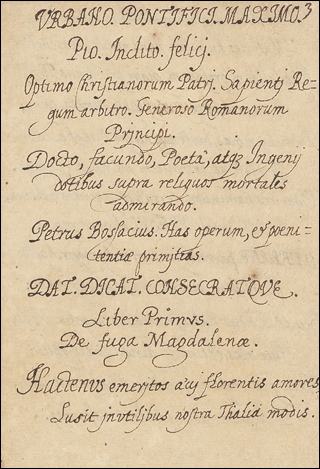 URBANO. PONTIFICI. MAXIMO. 3
Pio. Inclito. felicj.
Optimo Christianorum Patrj. Sapientj Re-
gum arbitro. Generoso Romanorum
Prjncipi.
Docto, facundo, Poeta, atqz Ingenij
dotibus supra reliquos mortales
admirando.
Petrus Bosſacius. Has operum, et poeni-
tentiæ primjtias.
DAT. DICAT. CONSECRATQVE.
Liber Primvs.
De fuga Magdalenæ.
Hactenvs emerjtos æuj florentis amores
Lusit jnvtiljbus nostra Thalia modis.